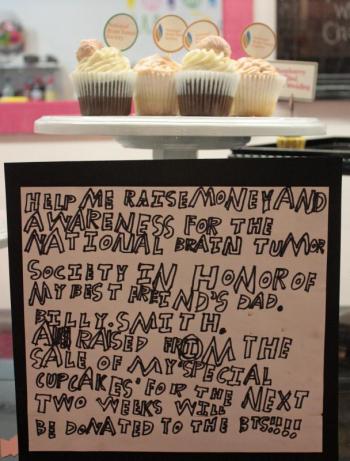 HELP ME RAISE MONEY AND
AWARENESS FOR THE
NATIONAL BRAIN TUMOR
SOCIETY IN HONOR OF
MY BEST FREIND'S DAD.
BILLY. SMITH.
All RAISED FROM THE
SALE OF MY "SPECIAL
CUPCAKES" FOR THE NEXT
TWO WEEKS WILL
BE DONATED TO THE BTS!!!!